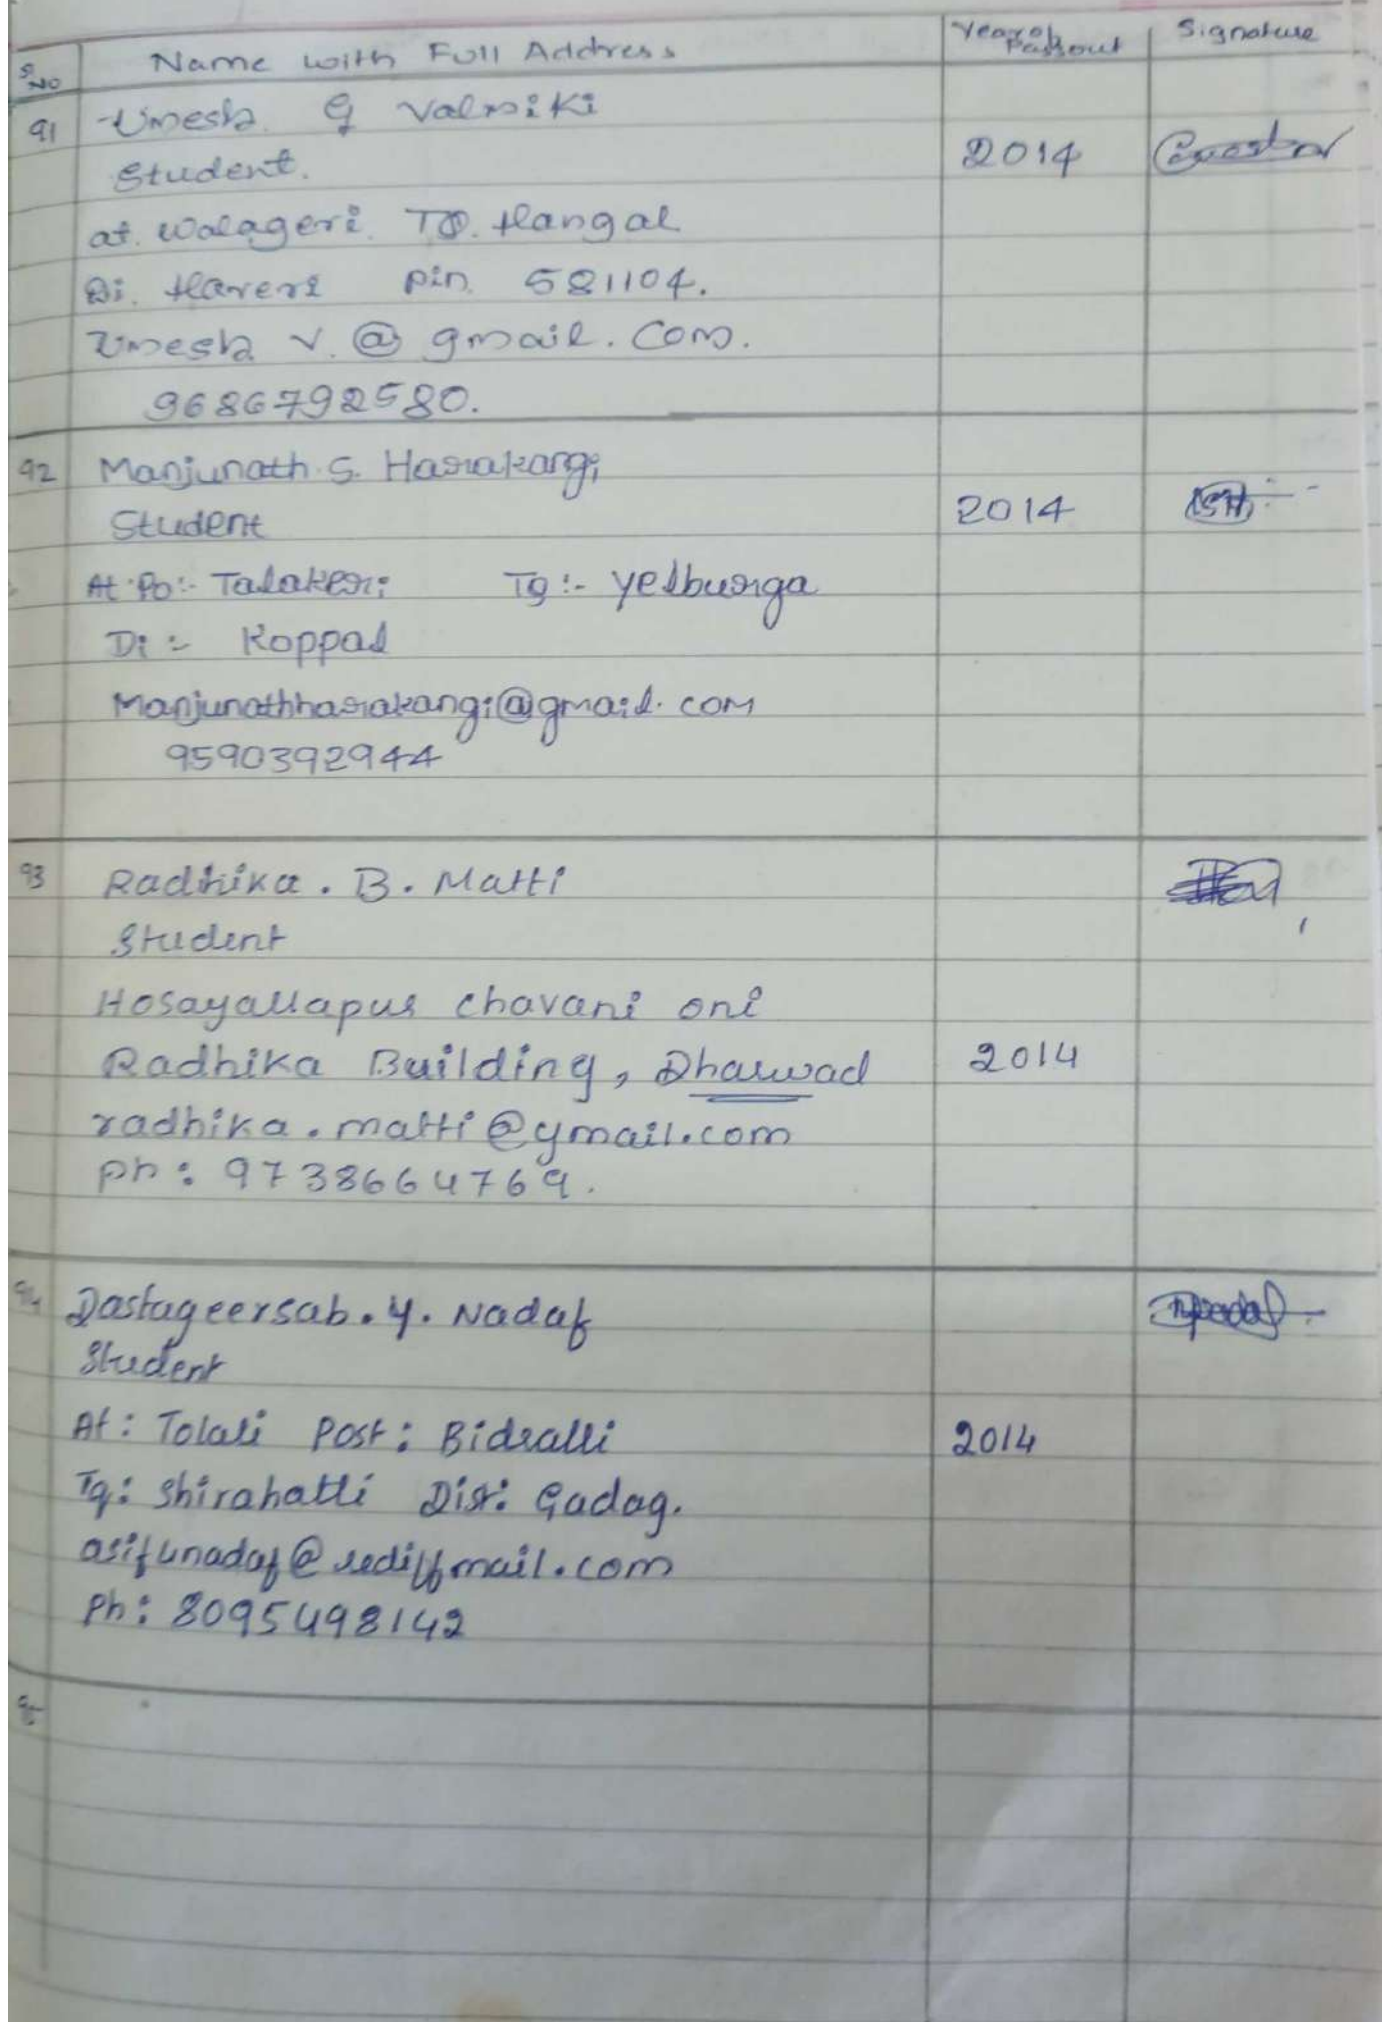 S No Name with Full Address Year of Passout Signature
91 Umesh G Valmiki
Student. 2014
at. Walageri. TQ. Hangal
Di. Haveri Pin. 581104.
Umesh V. @ gmail. Com.
9686792580.
92 Manjunath. S. Harakangi
Student 2014
At Po:- Talakeri Tq :- Yelburga
Di :- Koppal
Manjunathharakangi@gmail. com
9590392944
93 Radhika . B . Matti
Student
Hosayallapur chavani oni
Radhika Building, Dharwad 2014
radhika.matti@ymail.com
Ph : 9738664769.
94 Dastageersab . Y . Nadaf
Student
At : Tolali Post : Bidralli 2014
Tq : Shirahatti Dist : Gadag.
@rediffmail.com
Ph : 8095498142
95